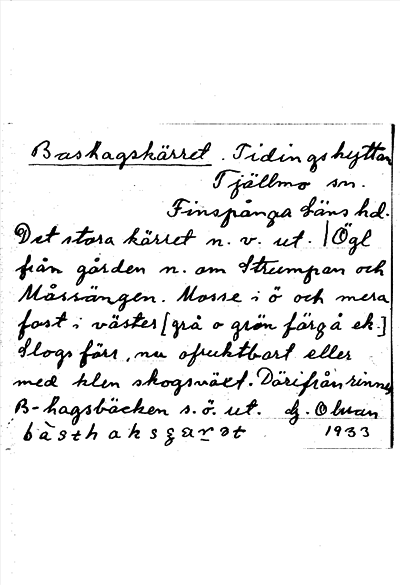 Bashagskärret. Tidingshyttan
Tjällmo sn.
Finspånga läns hd.
Det stora kärret n. v. ut. | Ögl
från gården n. om Strumpan och
Måssängen. Mosse i ö och mera
fast i väster [grå o grön färg å ek.]
Slogs förr, nu ofruktbart eller
med klen skogsväxt. Därifrån rinner
B-hagsbäcken s. ö. ut. G. Olman
1933